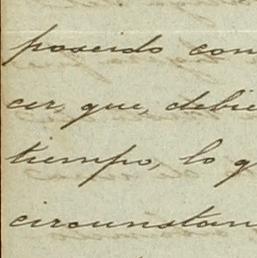 poseido con
cer, que, debie
tiempo, lo q
circunstan